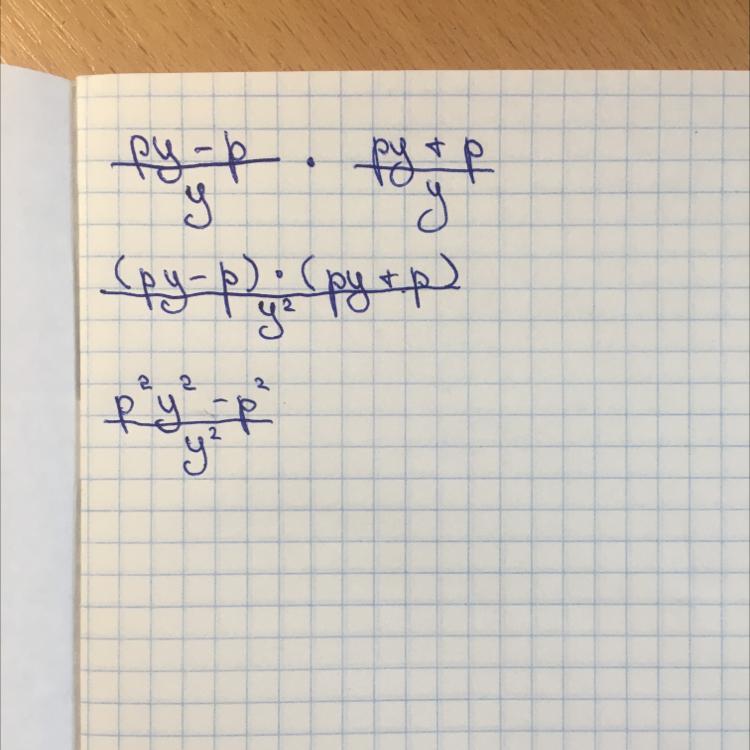 (py - p)/y · (py + p)/y
((py - p) · (py + p))/y²
(p²y² - p²)/y²